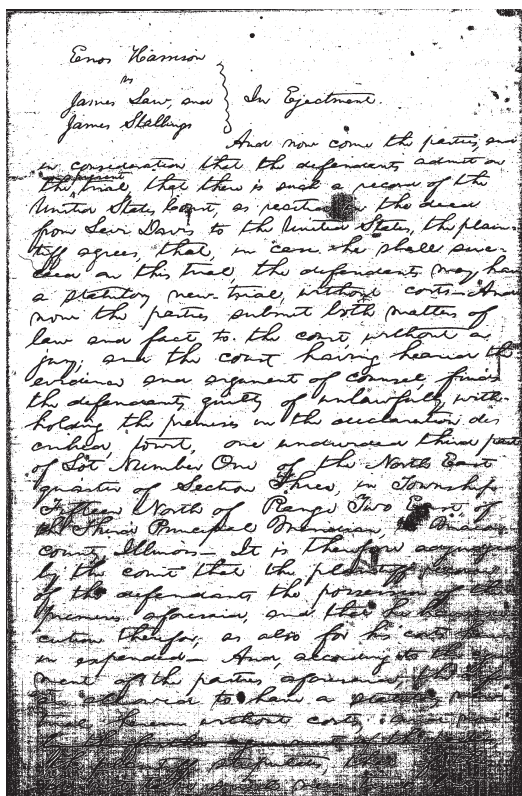 Enos Harrison
vs
James Law, and
James Stallings
In Ejectment.
And now come the parties, and
in consideration that the defendants admit on
the present trial, that there is such a record of the
United States Court, as recited in the deed
from Levi Davis to the United States, the plain-
tiff agrees, that, in case he shall suc-
ceed on this trial, the defendants may have
a statutory new-trial, without costs— And
now the parties submit both matters of
law and fact to the court, without a
jury; and the court having heard the
evidence and argument of counsel, finds
the defendants guilty of unlawfully with-
holding the premises in the declaration des
cribed, towit, one undivided third part
of Lot Number One of the North East
quarter of Section Three, in Township
Fifteen North of Range Two East, of
the Third Principal Meridian, 
county, Illinois— It is therefore adjudged
by the court that the plaintiff
of the defendants the possession of the
premises aforesaid, and that he have
cution therefor, as also for his costs
in expended— And, according to the
ment of the parties aforesaid, the
allowed to have a
without costs